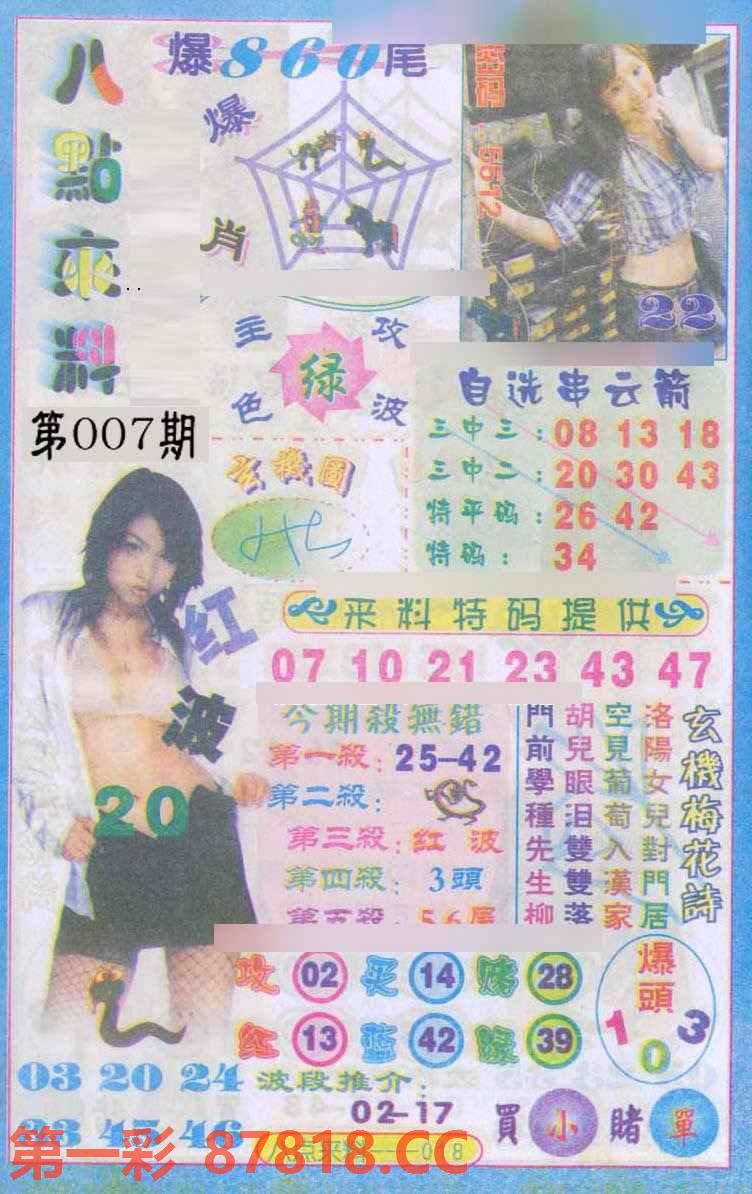 八點來料
第007期
爆860尾
爆肖
密码:5512
22
主攻
绿
色波
自选串云箭
三中三:08 13 18
三中二:20 30 43
特平码:26 42
特码:34
玄機圖
红波
20
来料特码提供
07 10 21 23 43 47
今期殺無錯
第一殺:25-42
第二殺:
第三殺:红波
第四殺:3頭
第五殺:56尾
玄機梅花詩
洛陽女兒對門居
空見葡萄入漢家
胡兒眼泪雙雙落
門前學種先生柳
攻 02 买 14 赌 28
红 13 蓝 42 绿 39
爆頭
1 0 3
03 20 24
33 45 46
波段推介:
02-17
買小賭單
第一彩 87818.CC